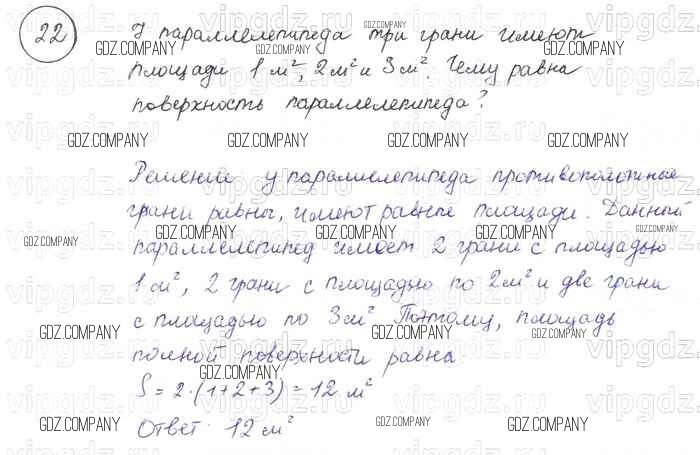 22
У параллелепипеда три грани имеют
площади 1 м², 2 м² и 3 м². Чему равна
поверхность параллелепипеда?
Решение у параллелепипеда противоположные
грани равны, имеют равные площади. Данный
параллелепипед имеет 2 грани с площадью
1 м², 2 грани с площадью по 2 м² и две грани
с площадью по 3 м² Поэтому, площадь
полной поверхности равна.
S = 2·(1+2+3) = 12 м²
Ответ: 12 м²